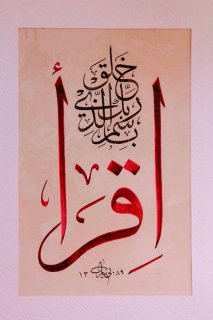 اقرأ
باسم
ربك الذي
خلق